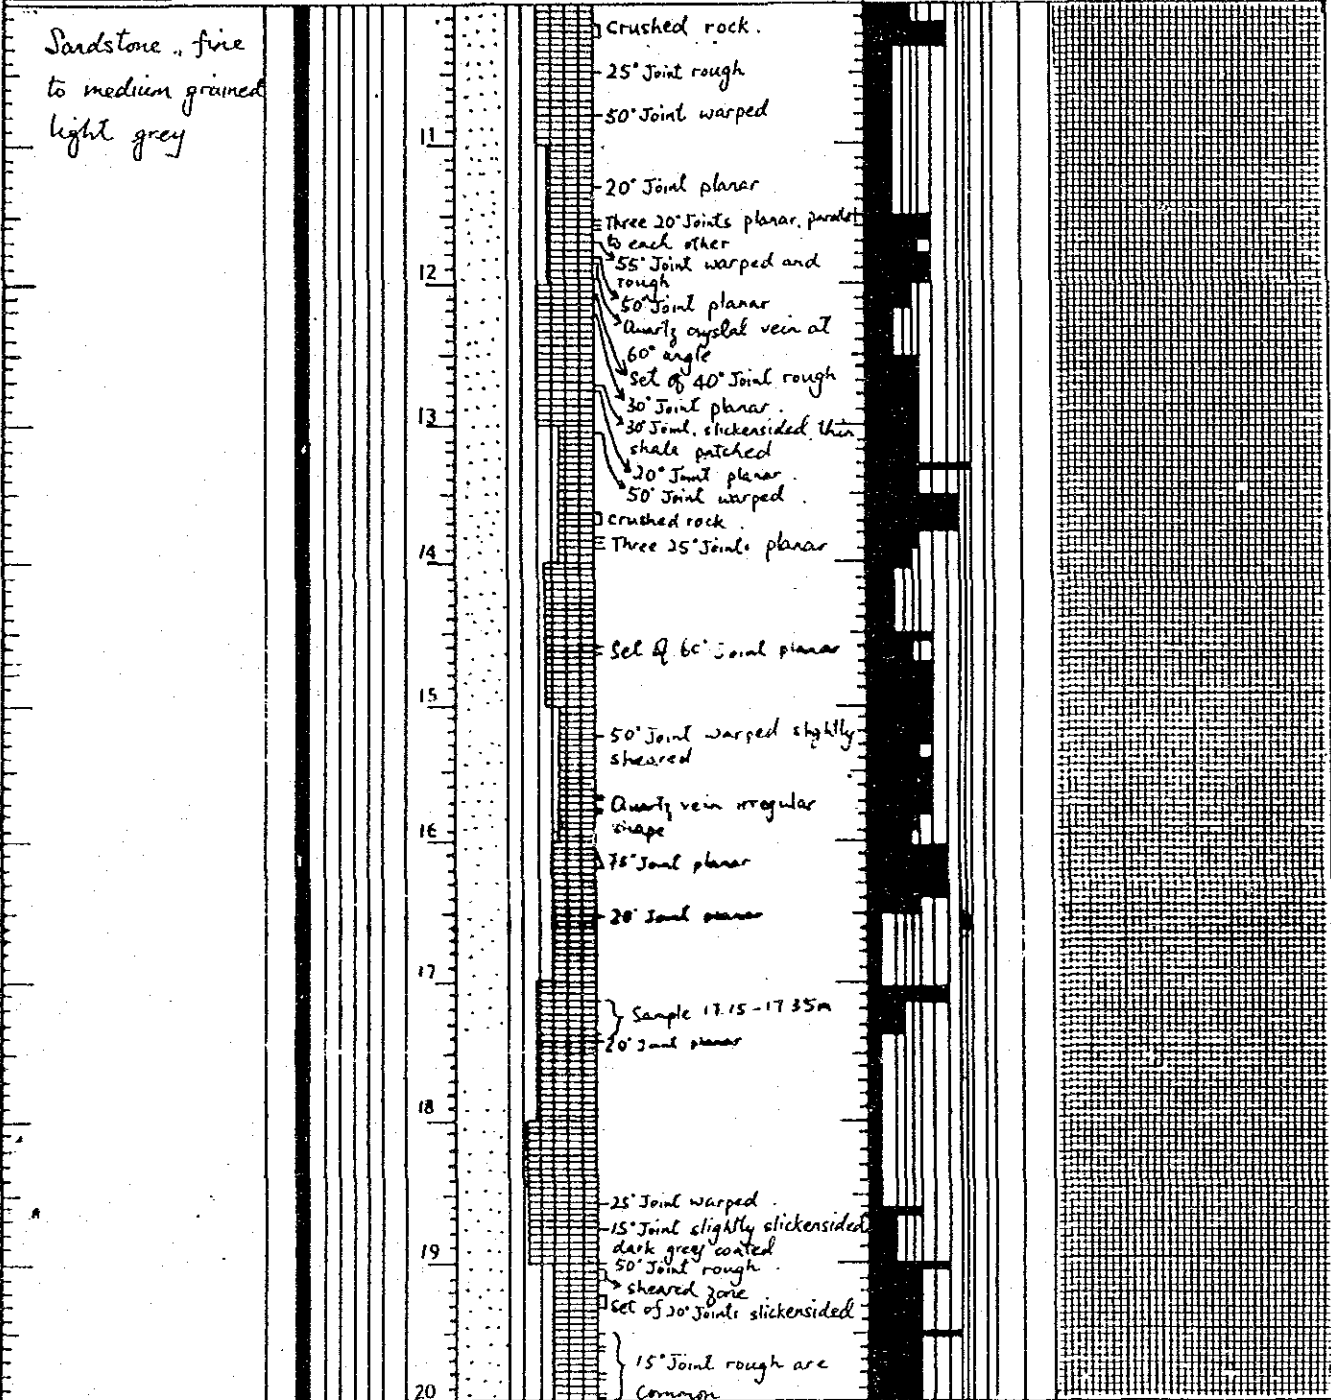 Sandstone, fine
to medium grained
light grey
crushed rock.
25° Joint rough
50° Joint warped
11
20° Joint planar
Three 20° Joints planar, parallel
to each other
55° Joint warped and
rough
12
50° Joint planar
Quartz crystal vein at
60° angle
Set of 40° Joint rough
30° Joint planar.
13
30° Joint, slickensided thin
shale patched
20° Joint planar.
50° Joint warped.
crushed rock.
14
Three 25° Joints planar
Set of 60° Joint planar
15
50° Joint warped slightly
sheared
Quartz vein irregular
shape
16
75° Joint planar
20° Joint planar
17
Sample 17.15-17.35m
20° Joint planar
18
25° Joint warped.
15° Joint slightly slickensided
dark grey coated
19
50° Joint rough.
sheared zone
Set of 20° Joints slickensided
15° Joint rough are
20
Common